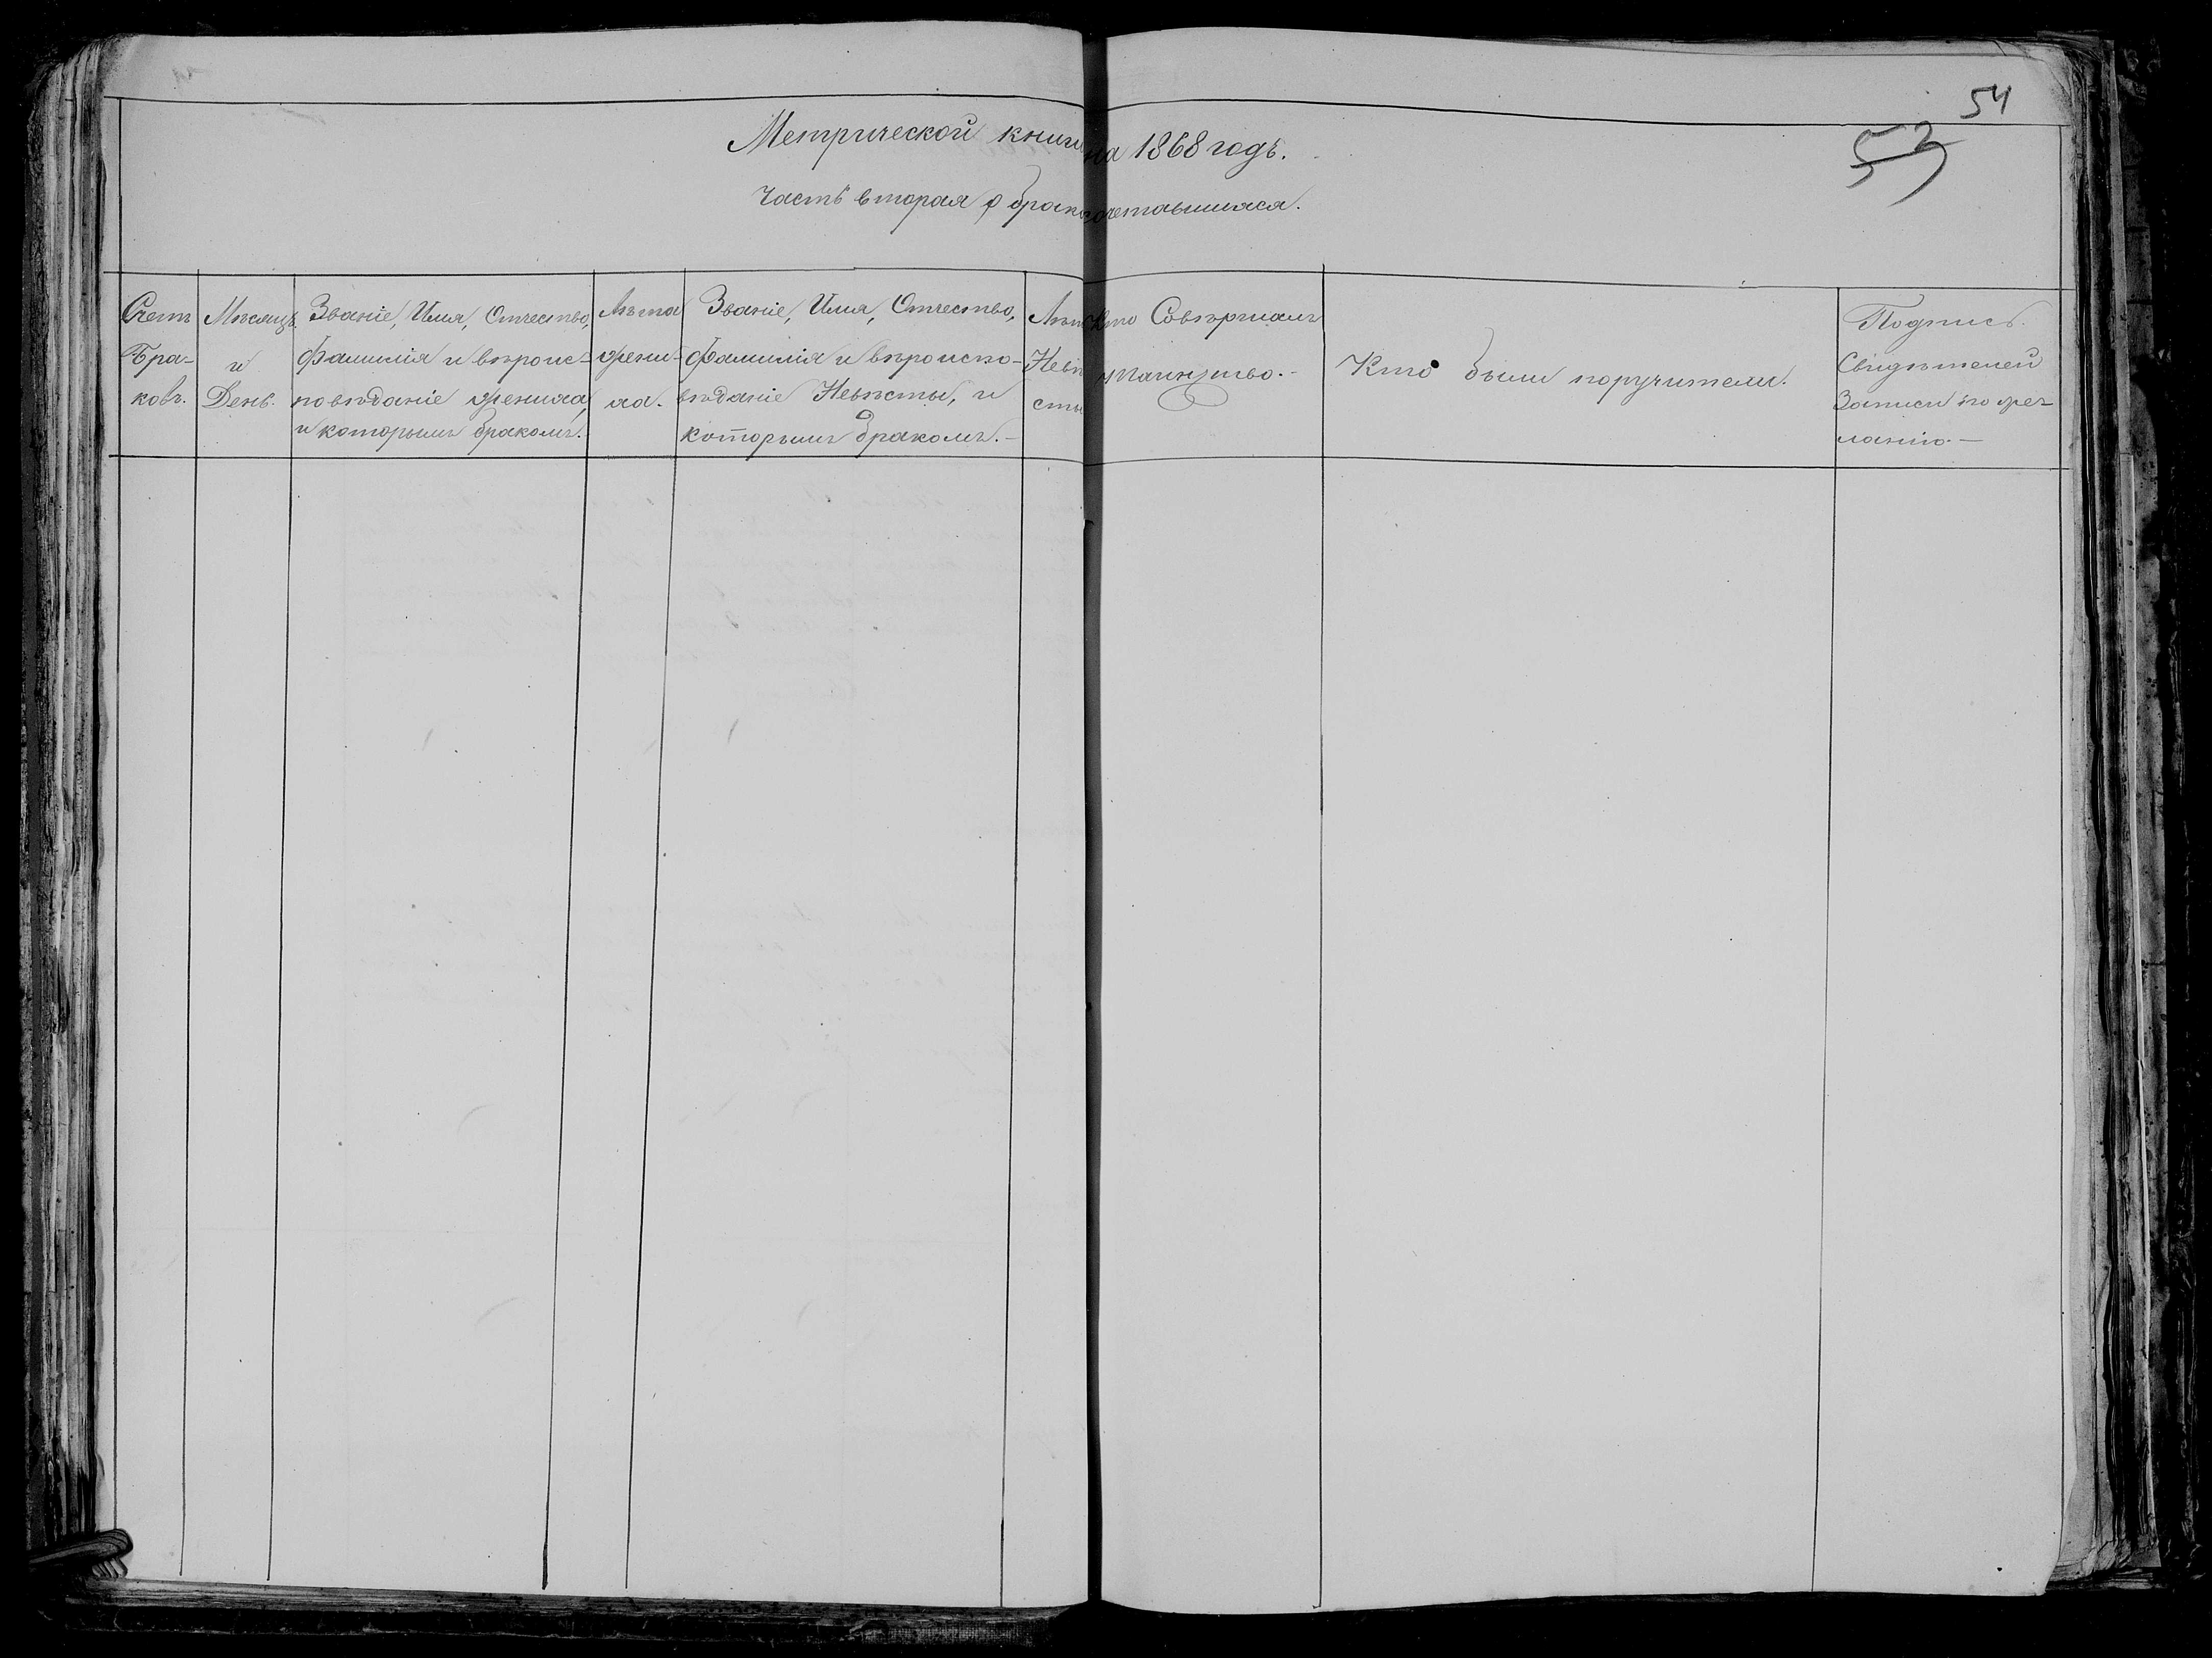 54
53
Метрической книги на 1868 годъ.
Часть вторая о бракосочетавшихся.
Счетъ
Бра-
ковъ.
Мѣсяцъ
и
День.
Званіе, Имя, Отчество,
Фамилія и вѣроис-
повѣданіе жениха,
и которымъ бракомъ.
Лѣта
жени-
ха.
Званіе, Имя, Отчество,
Фамилія и вѣроиспо-
вѣданіе Невѣсты, и
которымъ бракомъ.-
Лѣта
Невѣ
сты
Кто Совѣршалъ
таинство.-
Кто были поручители.
Подпись.
Свидѣтелей
Записи по же-
ланію.-